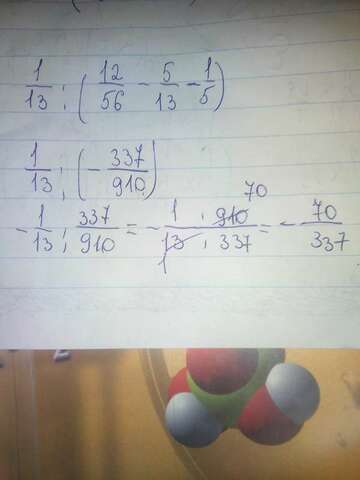 1/13 : (12/56 - 5/13 - 1/5)
1/13 : (-337/910)
-1/13 : 337/910 = -1·910/13·337 = -70/337
70
1